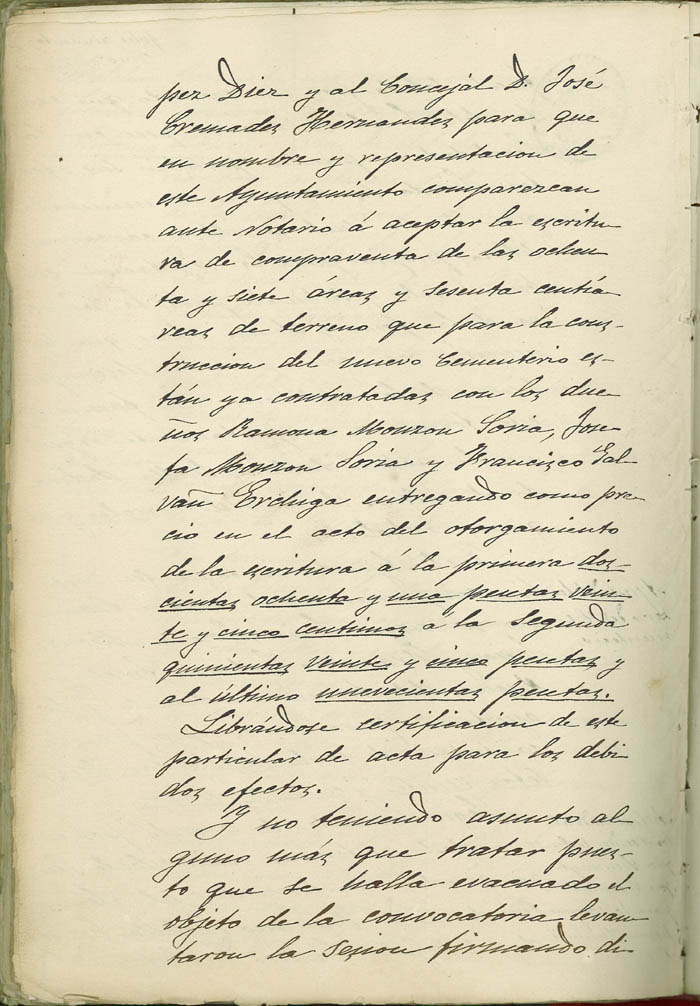 pez Diez y al Concejal D. José
Cremades Hernandez para que
en nombre y representacion de
este Ayuntamiento comparezcan
ante Notario á aceptar la escritu-
ra de compraventa de las ochen-
ta y siete áreas y sesenta centiá-
reas de terreno que para la cons-
truccion del nuevo Cementerio es-
tán ya contratadas con los due-
ños Ramona Monzon Soria, Jose-
fa Monzon Soria y Francisco Gal-
vañ Erchiga entregando como pre-
cio en el acto del otorgamiento
de la escritura á la primera dos-
cientas ochenta y una pesetas vein-
te y cinco centimos á la segunda
quinientas veinte y cinco pesetas y
al último nuevecientas pesetas.
Librándose certificacion de este
particular de acta para los debi-
dos efectos.
Y no teniendo asunto al-
guno más que tratar pues-
to que se halla evacuado el
objeto de la convocatoria levan-
taron la sesion firmando di-